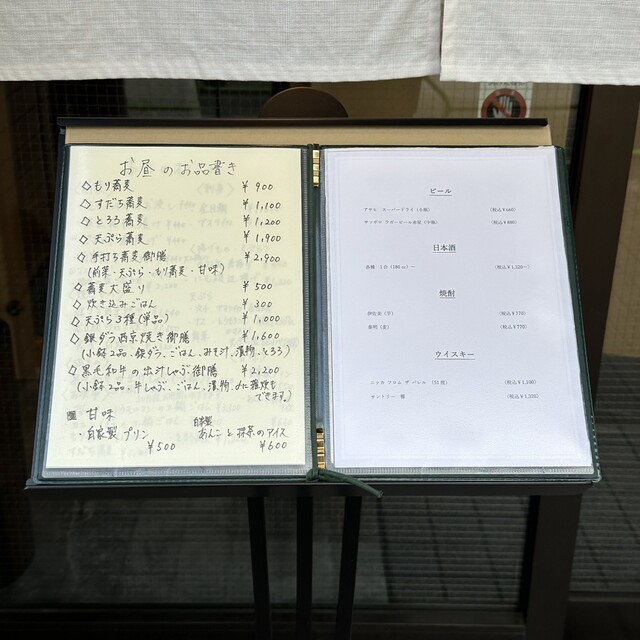 お昼のお品書き
◇もり蕎麦 ¥900
◇すだち蕎麦 ¥1,100
◇とろろ蕎麦 ¥1,200
◇天ぷら蕎麦 ¥1,900
◇手打ち蕎麦御膳 ¥2,900
(前菜・天ぷら・もり蕎麦・甘味)
◇蕎麦大盛り ¥500
◇炊き込みごはん ¥300
◇天ぷら3種(単品) ¥1,000
◇銀ダラ西京焼き御膳 ¥1,600
(小鉢2品、銀ダラ、ごはん、みそ汁、漬物、とろろ)
◇黒毛和牛の出汁しゃぶ御膳 ¥2,200
(小鉢2品、牛しゃぶ、ごはん、漬物、〆に雑炊も
できます。)
甘味
・自家製プリン ¥500
自家製
あんこと抹茶のアイス ¥600
ビール
アサヒ スーパードライ(小瓶) (税込¥660)
サッポロ ラガービール赤星(中瓶) (税込¥880)
日本酒
各種 1合(180cc)~ (税込¥1,320~)
焼酎
伊佐美(芋) (税込¥770)
(麦) (税込¥770)
ウイスキー
ニッカ フロム ザ バレル (51度) (税込¥1,100)
サントリー 響 (税込¥1,320)